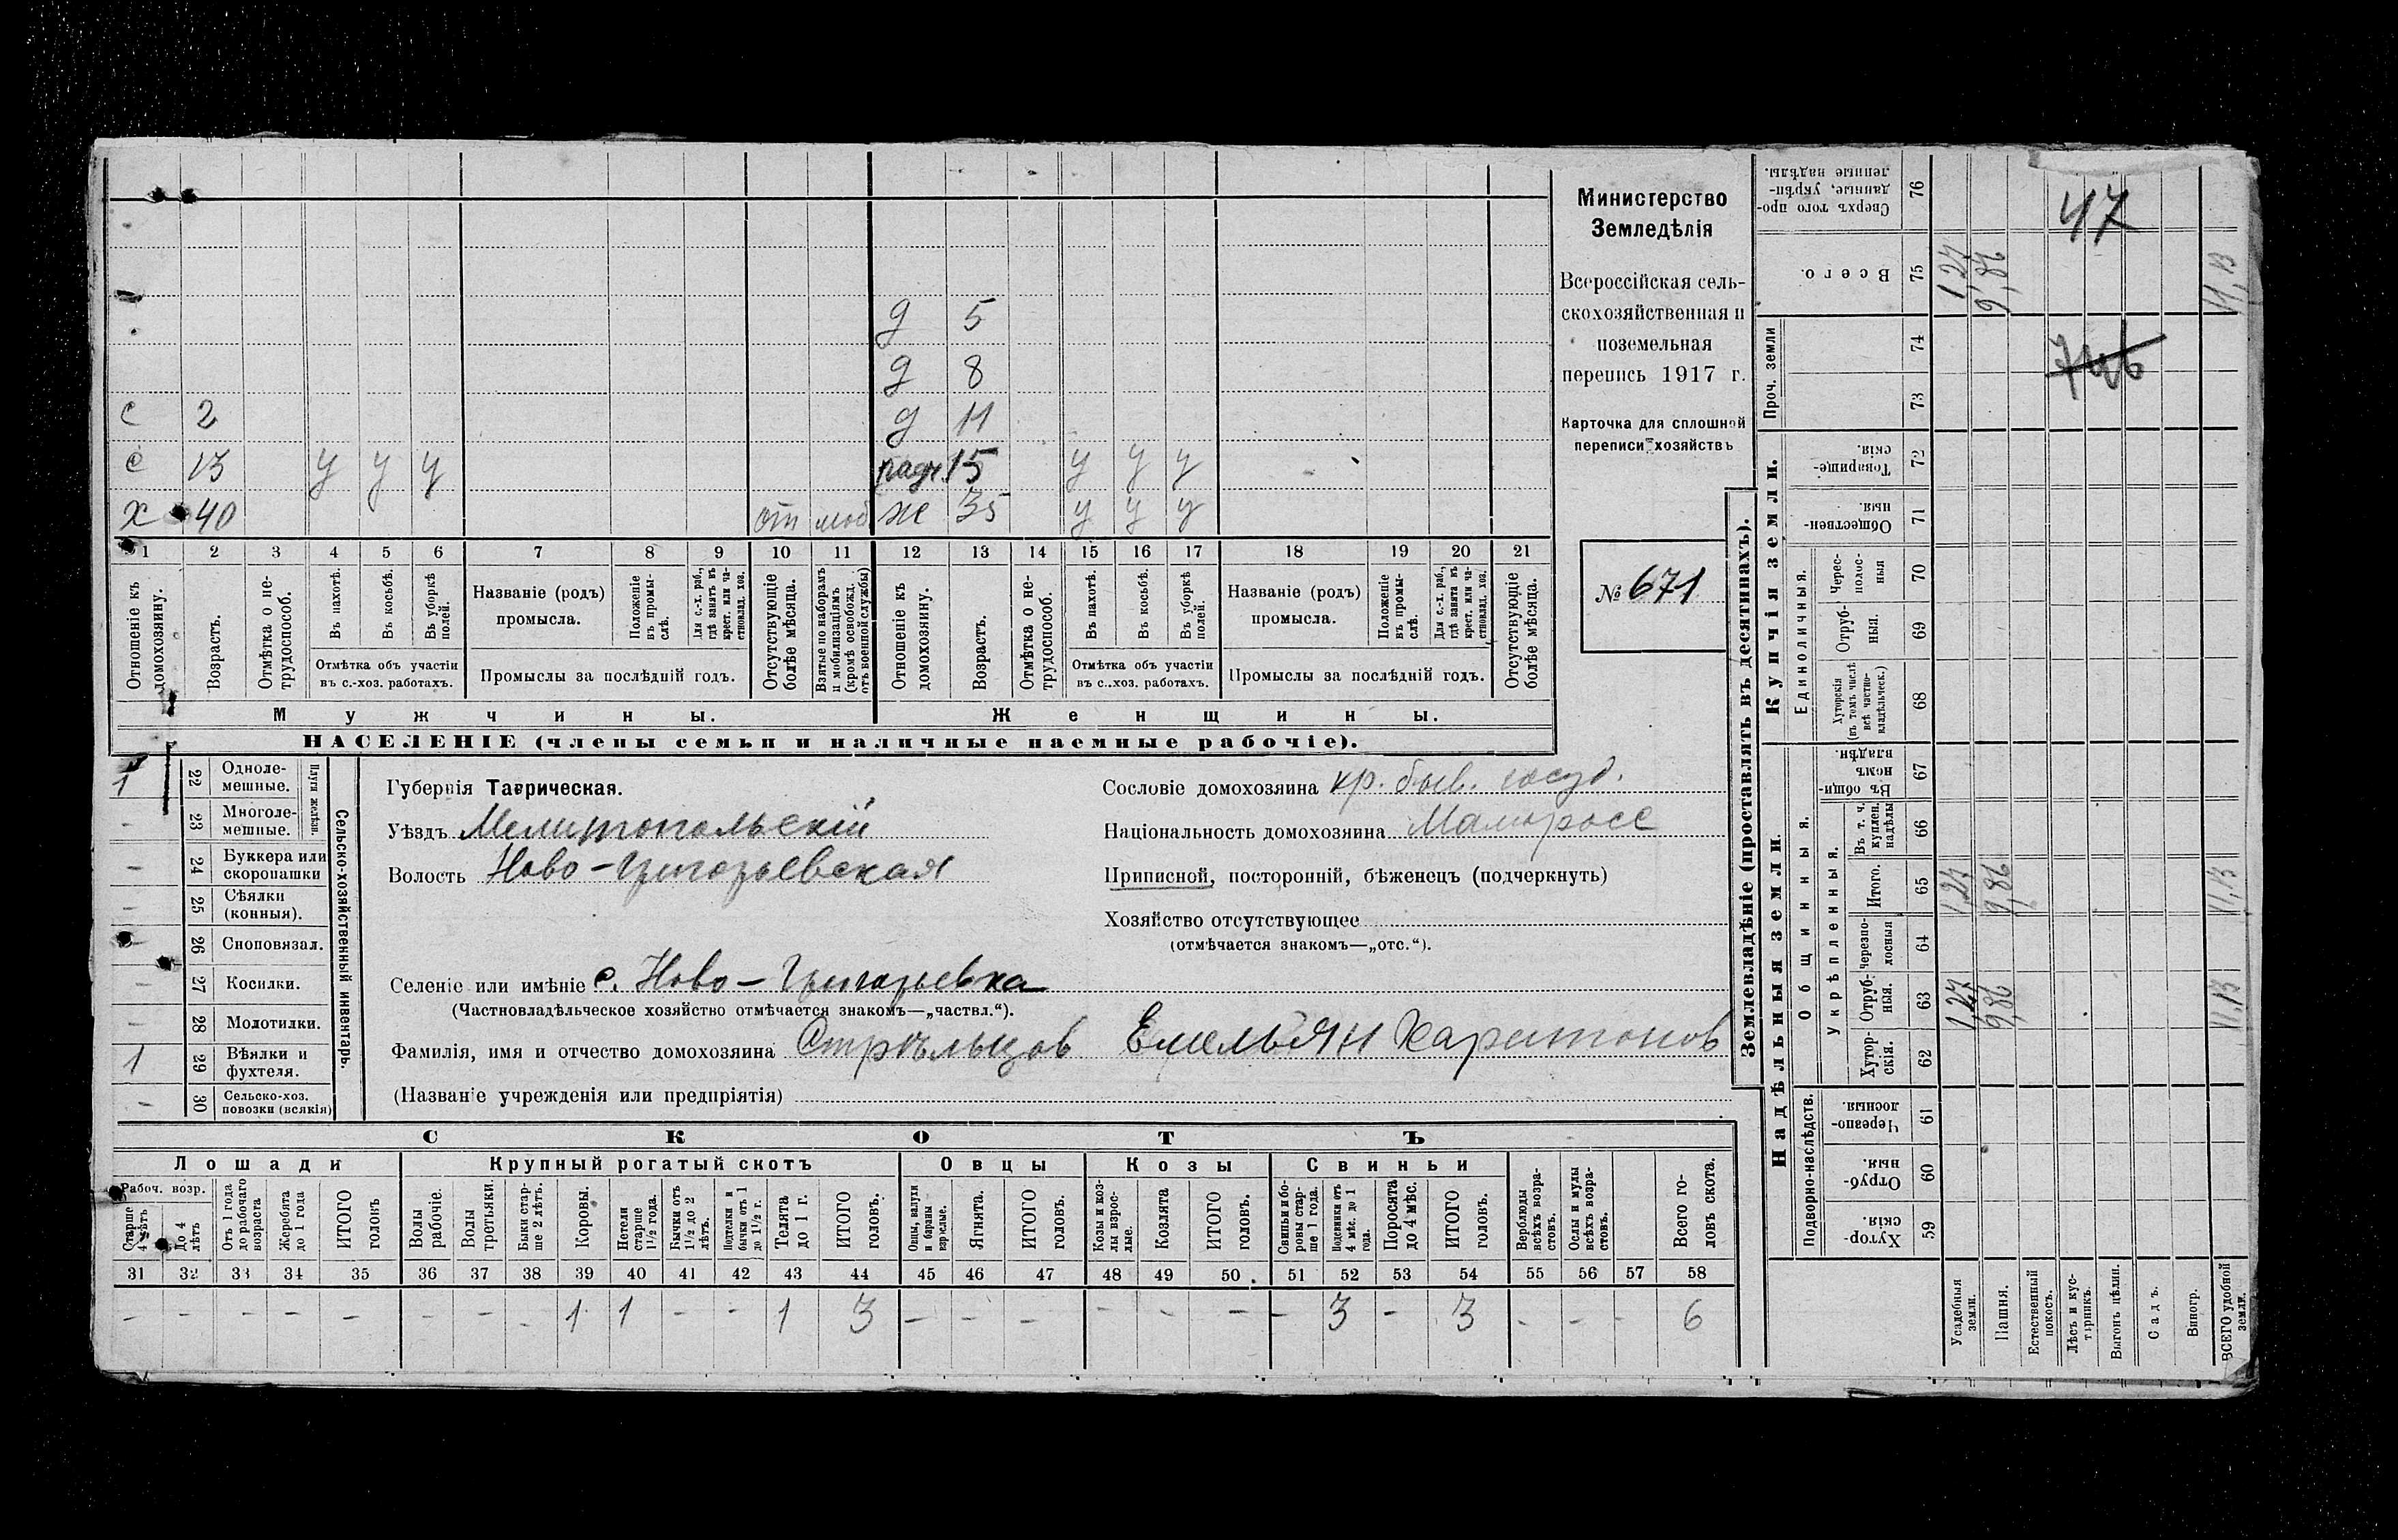 Министерство
Земледѣлія
Всероссійская сель-
скохозяйственная и
поземельная
перепись 1917 г.
Карточка для сплошной
переписи хозяйствъ
№ 671
д 5
д 8
с 2 д 11
с 13 у у у 15 у у у
х 40 от моб ж 35 у у у
1 2 3 4 5 6 7 8 9 10 11 12 13 14 15 16 17 18 19 20 21
Отношеніе къ домохозяину. Возрастъ. Отмѣтка о не-трудоспособ. Въ пахотѣ. Въ косьбѣ. Въ уборкѣ полей. Названіе (родъ) промысла. Положеніе въ промы-слѣ. Для с.-х. раб., гдѣ занятъ въ крест. или ча-стновлад. хоз. Отсутствующіе болѣе мѣсяца. Взятые по наборамъ и мобилизаціямъ (кромѣ освобожд. отъ военной службы)
Отношеніе къ домохозяину. Возрастъ. Отмѣтка о не-трудоспособ. Въ пахотѣ. Въ косьбѣ. Въ уборкѣ полей. Названіе (родъ) промысла. Положеніе въ промы-слѣ. Для с.-х. раб., гдѣ занята въ крест. или ча-стновлад. хоз. Отсутствующіе болѣе мѣсяца.
Отмѣтка объ участіи въ с.-хоз. работахъ. Промыслы за послѣдній годъ. Отмѣтка объ участіи въ с.-хоз. работахъ. Промыслы за послѣдній годъ.
Мужчины. Женщины.
НАСЕЛЕНІЕ (члены семьи и наличные наемные рабочіе).
Сельско-хозяйственный инвентарь.
Плуги желѣзн.
1 22 Одноле-мешные.
- 23 Многоле-мешные.
- 24 Буккера или скоропашки
- 25 Сѣялки (конныя).
- 26 Сноповязал.
- 27 Косилки.
- 28 Молотилки.
1 29 Вѣялки и фухтеля.
- 30 Сельско-хоз. повозки (всякія)
Губернія Таврическая.
Уѣздъ Мелитопольскій
Волость Ново-Григорьевская
Сословіе домохозяина кр. быв. госуд.
Національность домохозяина Малоросс
Приписной, посторонній, бѣженецъ (подчеркнуть)
Хозяйство отсутствующее
(отмѣчается знакомъ—„отс.“).
Селеніе или имѣніе с. Ново-Григорьевка
(Частновладѣльческое хозяйство отмѣчается знакомъ—„частвл.“).
Фамилія, имя и отчество домохозяина Стрѣльцов Емельян Харитонов
(Названіе учрежденія или предпріятія)
СКОТЪ
Лошади Крупный рогатый скотъ Овцы Козы Свиньи
Рабоч. возр.
Старше 4 лѣтъ До 4 лѣтъ Отъ 1 года до рабочаго возраста Жеребята до 1 года ИТОГО головъ Волы рабочіе. Волы третьяки. Быки стар-ше 2 лѣтъ. Коровы. Нетели старше 1½ года. Бычки отъ 1½ до 2 лѣтъ. Подтелки и бычки отъ 1 до 1½ г. Телята до 1 г. ИТОГО головъ. Овцы, валухи и бараны взрослые. Ягнята. ИТОГО головъ. Козы и коз-лы взрос-лые. Козлята ИТОГО головъ. Свиньи и бо-ровы стар-ше 1 года. Подсвинки отъ 4 мѣс. до 1 года. Поросята до 4 мѣс. ИТОГО головъ. Верблюды всѣхъ возра-стовъ. Ослы и мулы всѣхъ возра-стовъ. Всего го-ловъ скота.
31 32 33 34 35 36 37 38 39 40 41 42 43 44 45 46 47 48 49 50 51 52 53 54 55 56 57 58
- - - - - - - - 1 1 - - 1 3 - - - - - - - 3 - 3 - - - 6
Землевладѣніе (проставлять въ десятинахъ).
Надѣльныя земли. Купчія земли. Проч. земли
Подворно-наслѣдств. Общинныя. Укрѣпленныя. Единоличныя.
Хутор-скія. 59
Отруб-ныя. 60
Черезпо-лосныя. 61
Хутор-скія. 62
Отруб-ныя. 63 1,27 9,86 11,13
Черезпо-лосныя 64
Итого. 65 1,27 9,86 11,13
Въ т. ч. куплен. надѣлы 66
Въ общи-номъ владѣн. 67
Хуторскія (въ томъ числѣ всѣ частно-владѣльческ.) 68
Отруб-ныя. 69
Черес-полос-ныя 70
Обществен-ныя. 71
Товарище-скія. 72
73
74
Всего. 75 1,27 9,86 11,13
Сверхъ того про-данные, укрѣп-ленные надѣлы. 76
47
746
Усадебныя земли. Пашня. Естественный покосъ. Лѣсъ и кус-тарникъ. Выгонъ цѣлин. Садъ. Виногр. ВСЕГО удобной земли.